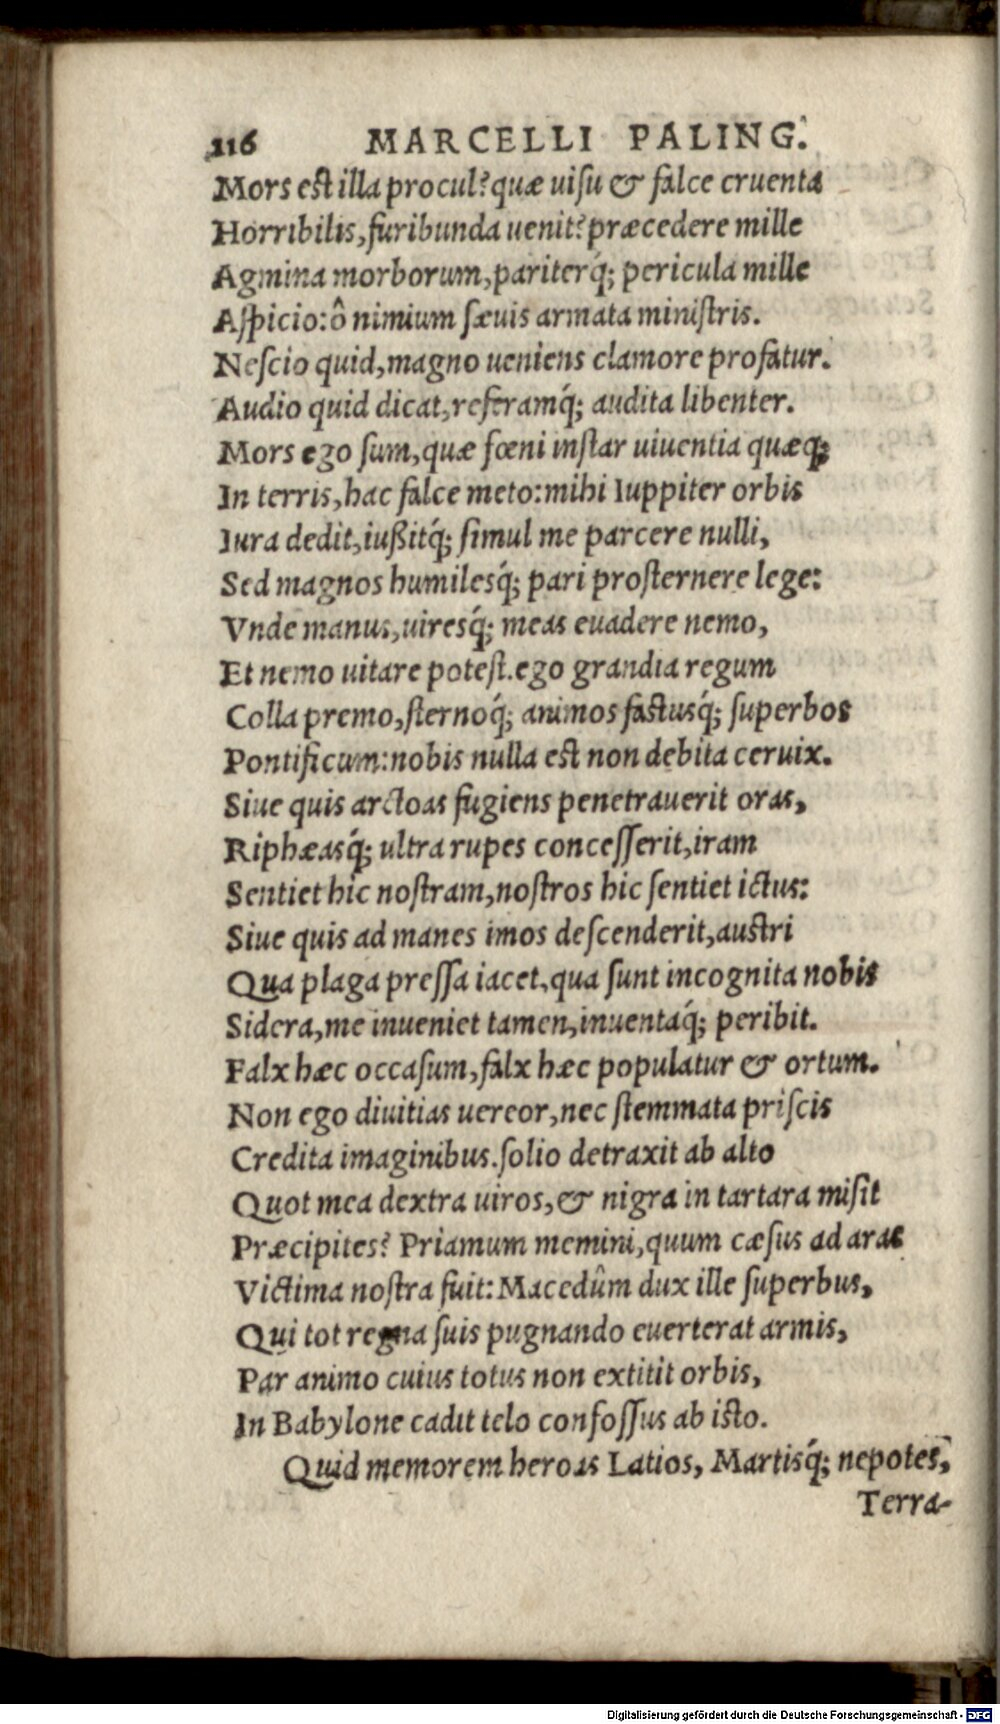 116 MARCELLI PALING.
Mors est illa procul? quæ uisu & falce cruenta
Horribilis, furibunda uenit? præcedere mille
Agmina morborum, pariterq́; pericula mille
Aspicio: ô nimium sæuis armata ministris.
Nescio quid, magno ueniens clamore profatur.
Audio quid dicat, referamq́; audita libenter.
Mors ego sum, quæ fœni instar uiuentia quæq;
In terris, hac falce meto: mihi Iuppiter orbis
Iura dedit, iußitq́; simul me parcere nulli,
Sed magnos humilesq́; pari prosternere lege:
Vnde manus, uiresq́; meas euadere nemo,
Et nemo uitare potest. ego grandia regum
Colla premo, sternoq́; animos fastusq́; superbos
Pontificum: nobis nulla est non debita ceruix.
Siue quis arctoas fugiens penetrauerit oras,
Riphæasq́; ultra rupes concesserit, iram
Sentiet hic nostram, nostros hic sentiet ictus:
Siue quis ad manes imos descenderit, austri
Qua plaga pressa iacet, qua sunt incognita nobis
Sidera, me inueniet tamen, inuentaq́; peribit.
Falx hæc occasum, falx hæc populatur & ortum.
Non ego diuitias uereor, nec stemmata priscis
Credita imaginibus. solio detraxit ab alto
Quot mea dextra uiros, & nigra in tartara misit
Præcipites? Priamum memini, quum cæsus ad aras
Victima nostra fuit: Macedûm dux ille superbus,
Qui tot regna suis pugnando euerterat armis,
Par animo cuius totus non extitit orbis,
In Babylone cadit telo confossus ab isto.
Quid memorem heroas Latios, Martisq́; nepotes,
Terra-
Digitalisierung gefördert durch die Deutsche Forschungsgemeinschaft - DFG